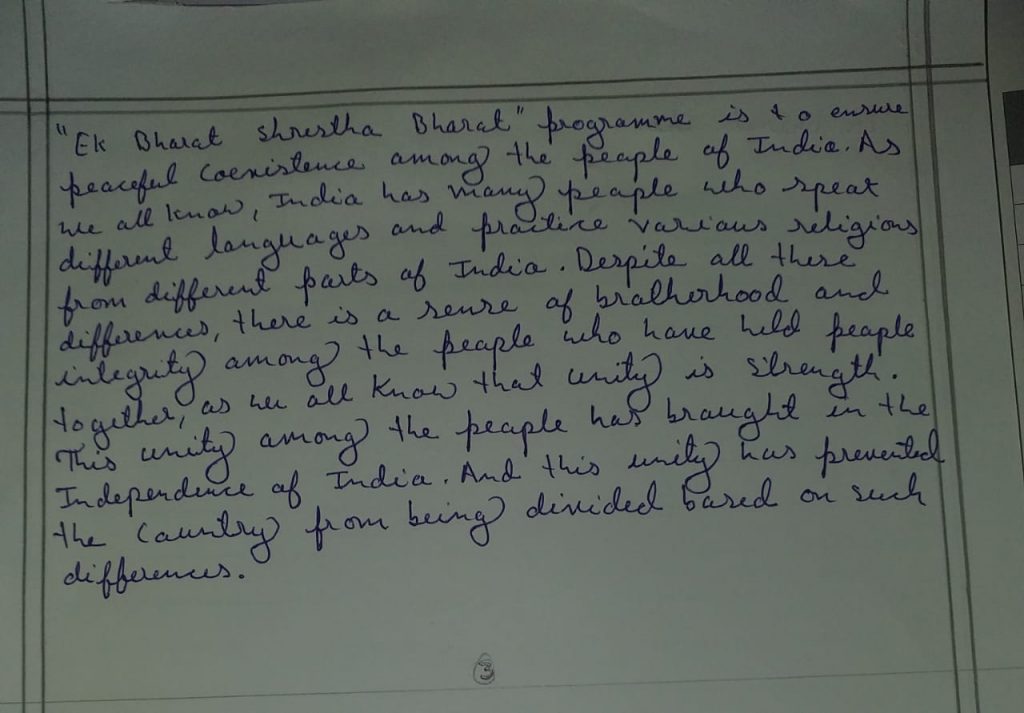 "Ek Bharat Shrestha Bharat" programme is to ensure
peaceful Coexistence among the people of India. As
we all know, India has many people who speak
different languages and practice various religions
from different parts of India. Despite all these
differences, there is a sense of brotherhood and
integrity among the people who have held people
together, as we all know that unity is strength.
This unity among the people has brought in the
Independence of India. And this unity has prevented
the country from being divided based on such
differences.
3